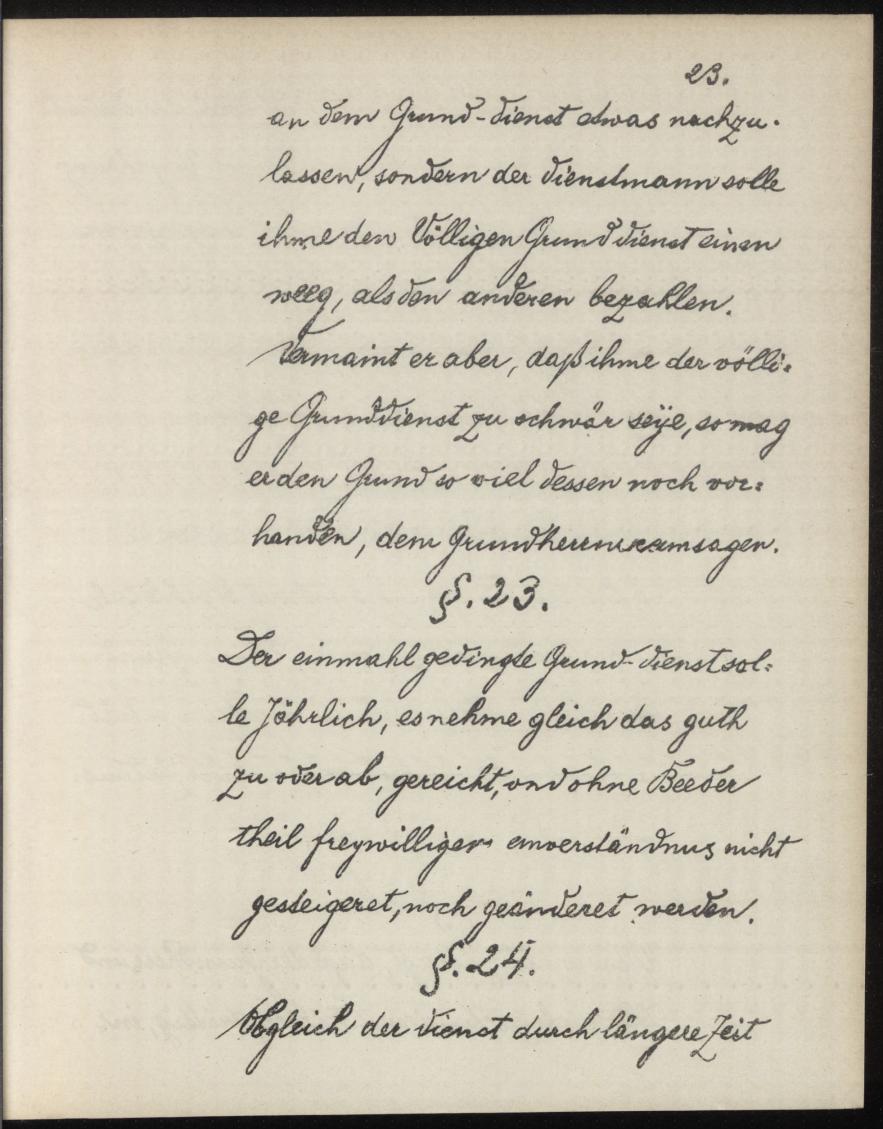 23.
an dem Grund-dienst etwas nachzu-
lassen, sondern der dienstmann solle
ihme den Völligen Grunddienst einen
weeg, als den anderen bezahlen.
Vermaint er aber, daß ihme der völli=
ge Grunddienst zu schwär seÿe, so mag
er den Grund so viel dessen noch vor=
handen, dem Grundherrn
§. 23.
Der einmahl gedingte Grund-dienst sol=
le Jährlich, es nehme gleich das guth
zu oder ab, gereicht, und ohne Beeder
theil freywilliger einverständnus nicht
gesteigeret, noch geänderet werden.
§. 24.
Obgleich der dienst durch längere Zeit